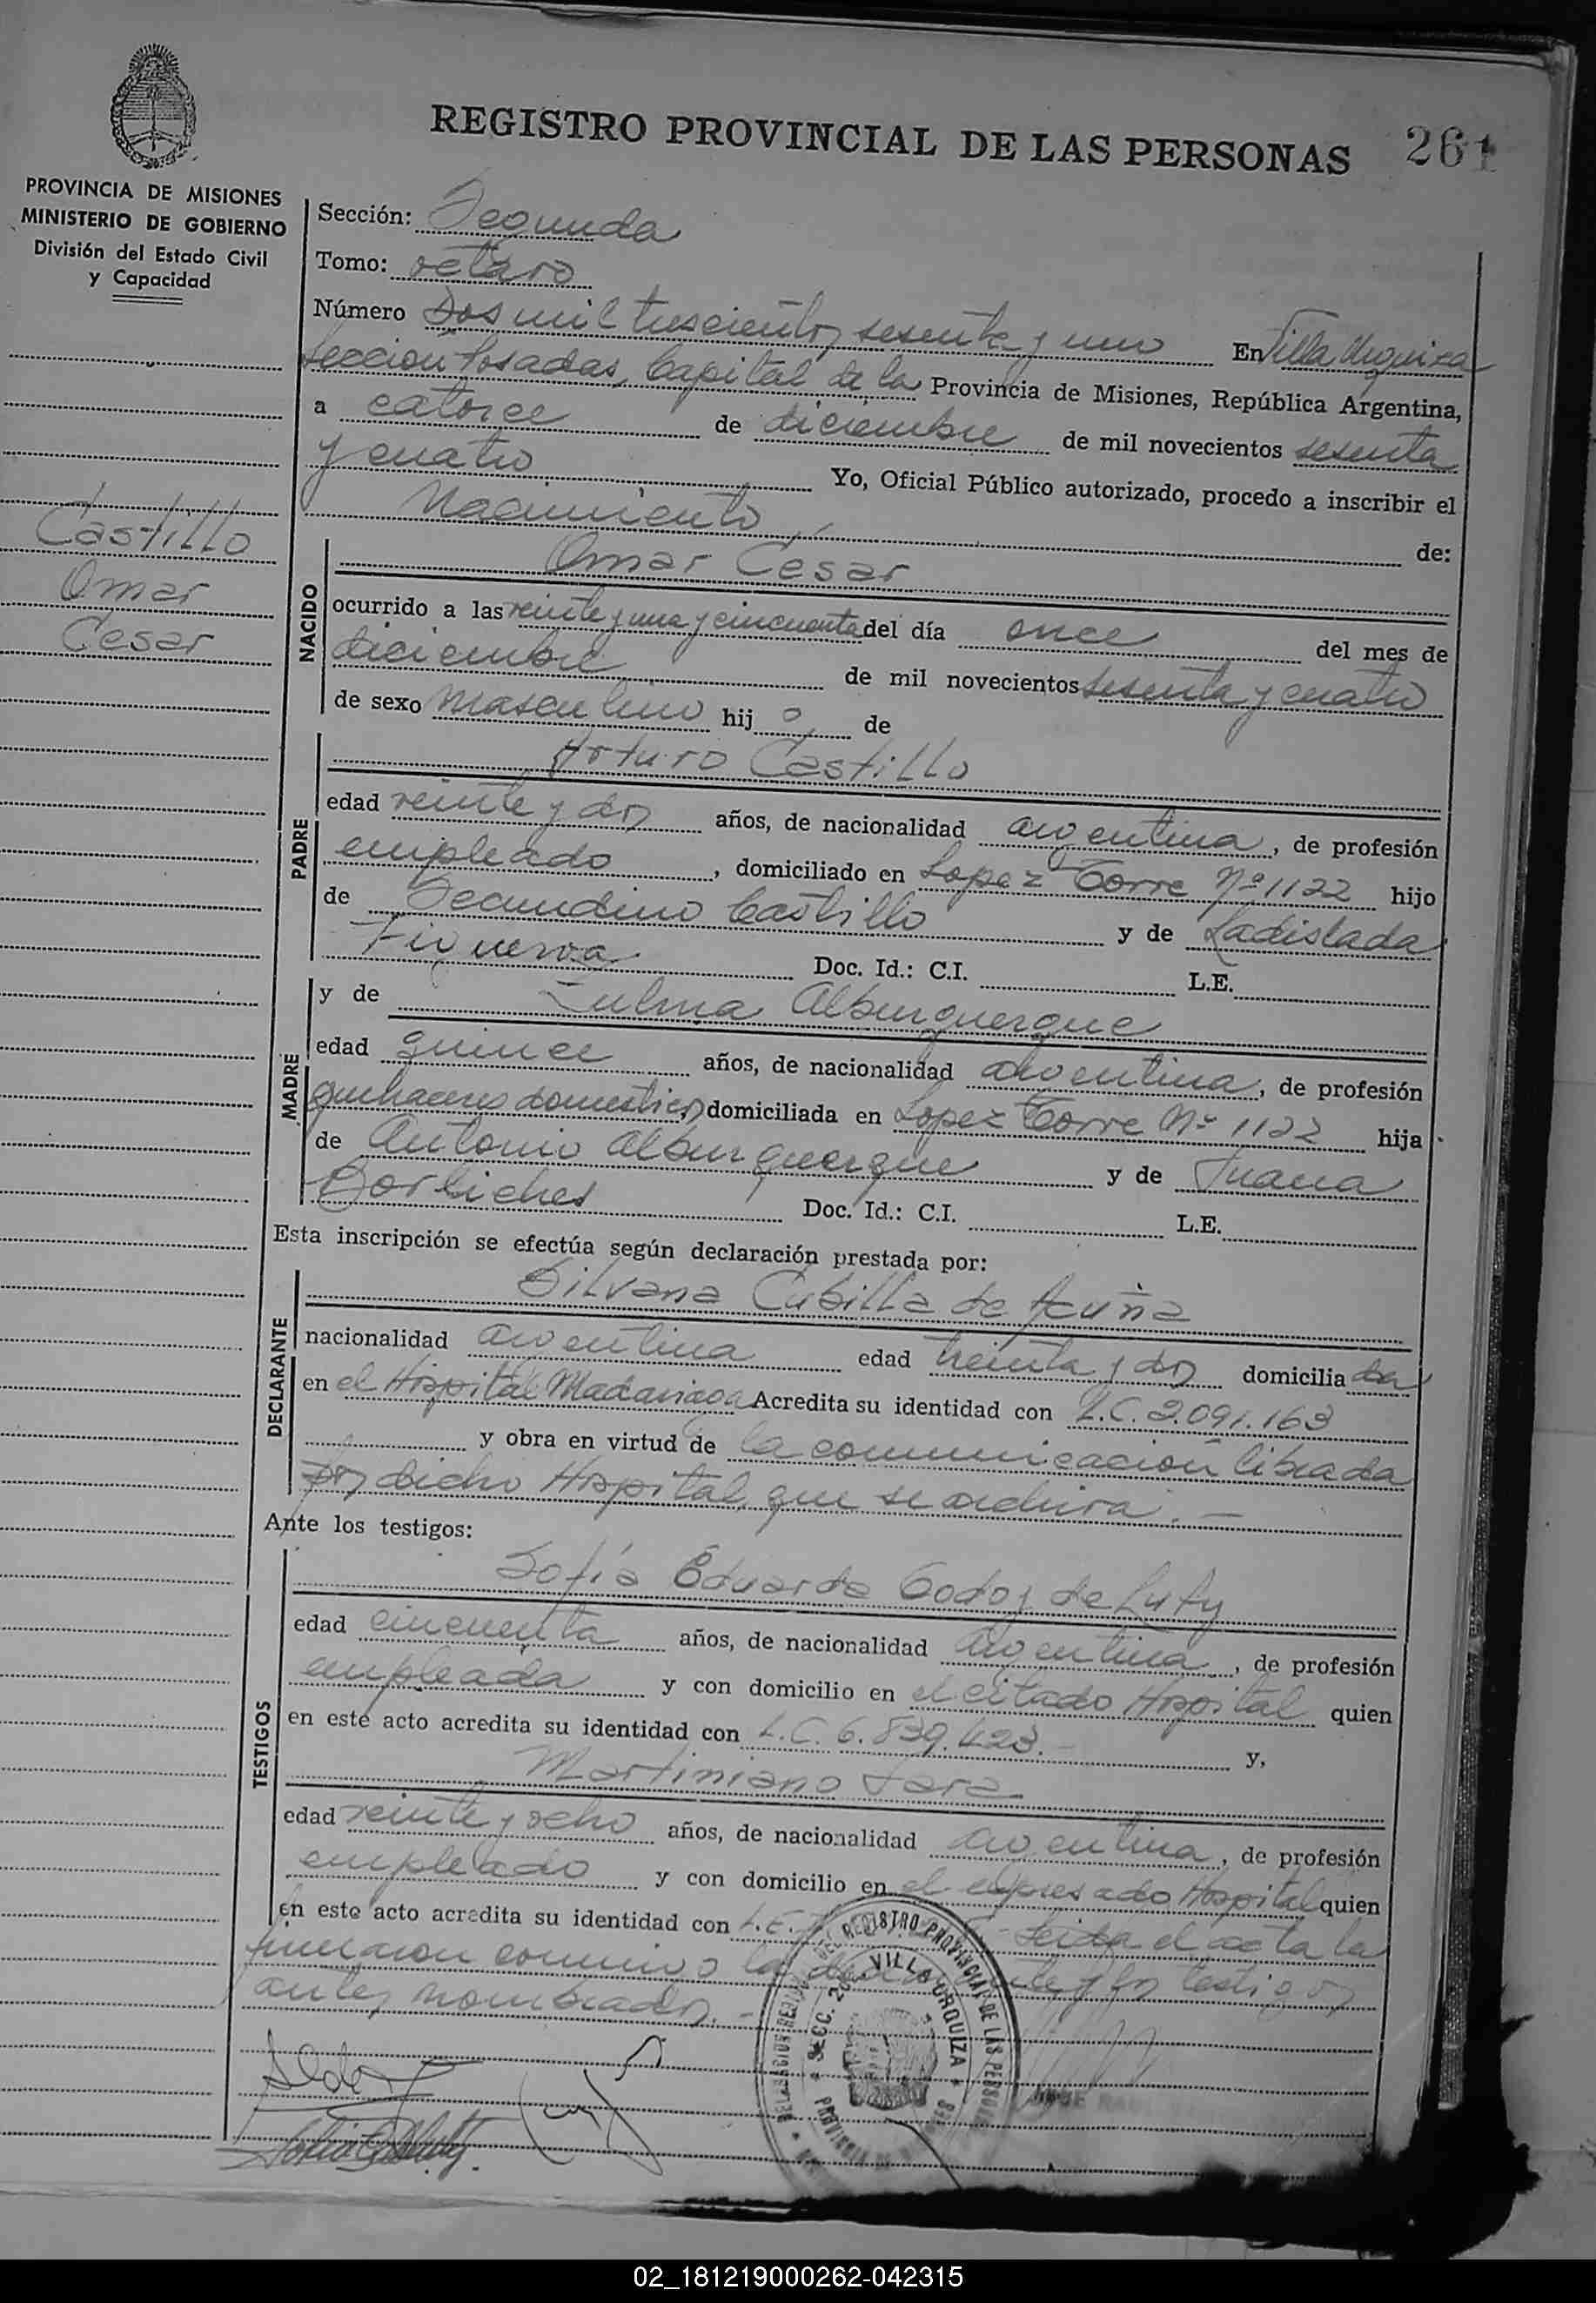 REGISTRO PROVINCIAL DE LAS PERSONAS 261
PROVINCIA DE MISIONES
MINISTERIO DE GOBIERNO
División del Estado Civil
y Capacidad
Castillo
Omar
Cesar
Sección: Segunda
Tomo: octavo
Número Dos mil trescientos sesenta y uno En Villa Urquiza
Sección Posadas, Capital de la Provincia de Misiones, República Argentina,
a catorce de diciembre de mil novecientos sesenta
y cuatro Yo, Oficial Público autorizado, procedo a inscribir el
Nacimiento de:
NACIDO
Omar César
ocurrido a las veinte y una y cincuenta del día once del mes de
diciembre de mil novecientos sesenta y cuatro
de sexo masculino hijo de
PADRE
Arturo Castillo
edad veinte y dos años, de nacionalidad argentina, de profesión
empleado, domiciliado en Lopez Torre Nº 1122 hijo
de Secundino Castillo y de Ladislada
Figueroa Doc. Id.: C.I. L.E.
MADRE
y de Zulma Alburquerque
edad quince años, de nacionalidad argentina, de profesión
quehaceres domesticos domiciliada en Lopez Torre Nº 1122 hija
de Antonio Alburquerque y de Juana
Doc. Id.: C.I. L.E.
Esta inscripción se efectúa según declaración prestada por:
DECLARANTE
Silvana Cubilla de Acuña
nacionalidad argentina edad treinta y dos domiciliada
en el Hospital Madariaga Acredita su identidad con L.C. 2.091.163
y obra en virtud de la comunicación librada
por dicho Hospital que se archiva. -
Ante los testigos:
TESTIGOS
Sofía Eduarda Godoy de Luty
edad cincuenta años, de nacionalidad argentina, de profesión
empleada y con domicilio en el citado Hospital quien
en este acto acredita su identidad con L.C. 6.839.423. - y,
Martiniano Jara
edad veinte y ocho años, de nacionalidad argentina, de profesión
empleado y con domicilio en el expresado Hospital quien
en este acto acredita su identidad con L.E. Leida el acta la
firmaron conmigo la declarante y los testigos
antes nombrados. -
REGISTRO PROVINCIAL DE LAS PERSONAS
SECC. 2ª VILLA URQUIZA
PROVINCIA DE
02_181219000262-042315